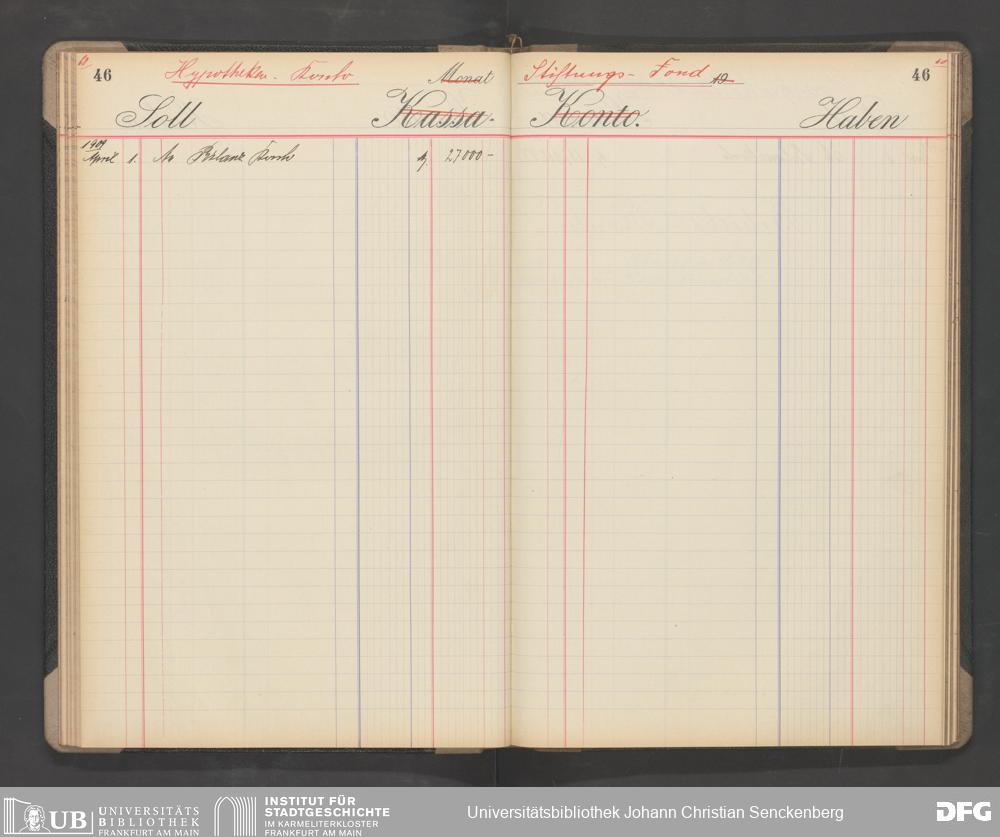 46 Hypotheken-Konto Monat
Soll Kassa-
1909
April 1. An Bilanz Konto 27000 -
Stiftungs-Fond 19 46
Konto. Haben
UB UNIVERSITÄTS
BIBLIOTHEK
FRANKFURT AM MAIN
INSTITUT FÜR
STADTGESCHICHTE
IM KARMELITERKLOSTER
FRANKFURT AM MAIN
Universitätsbibliothek Johann Christian Senckenberg
DFG